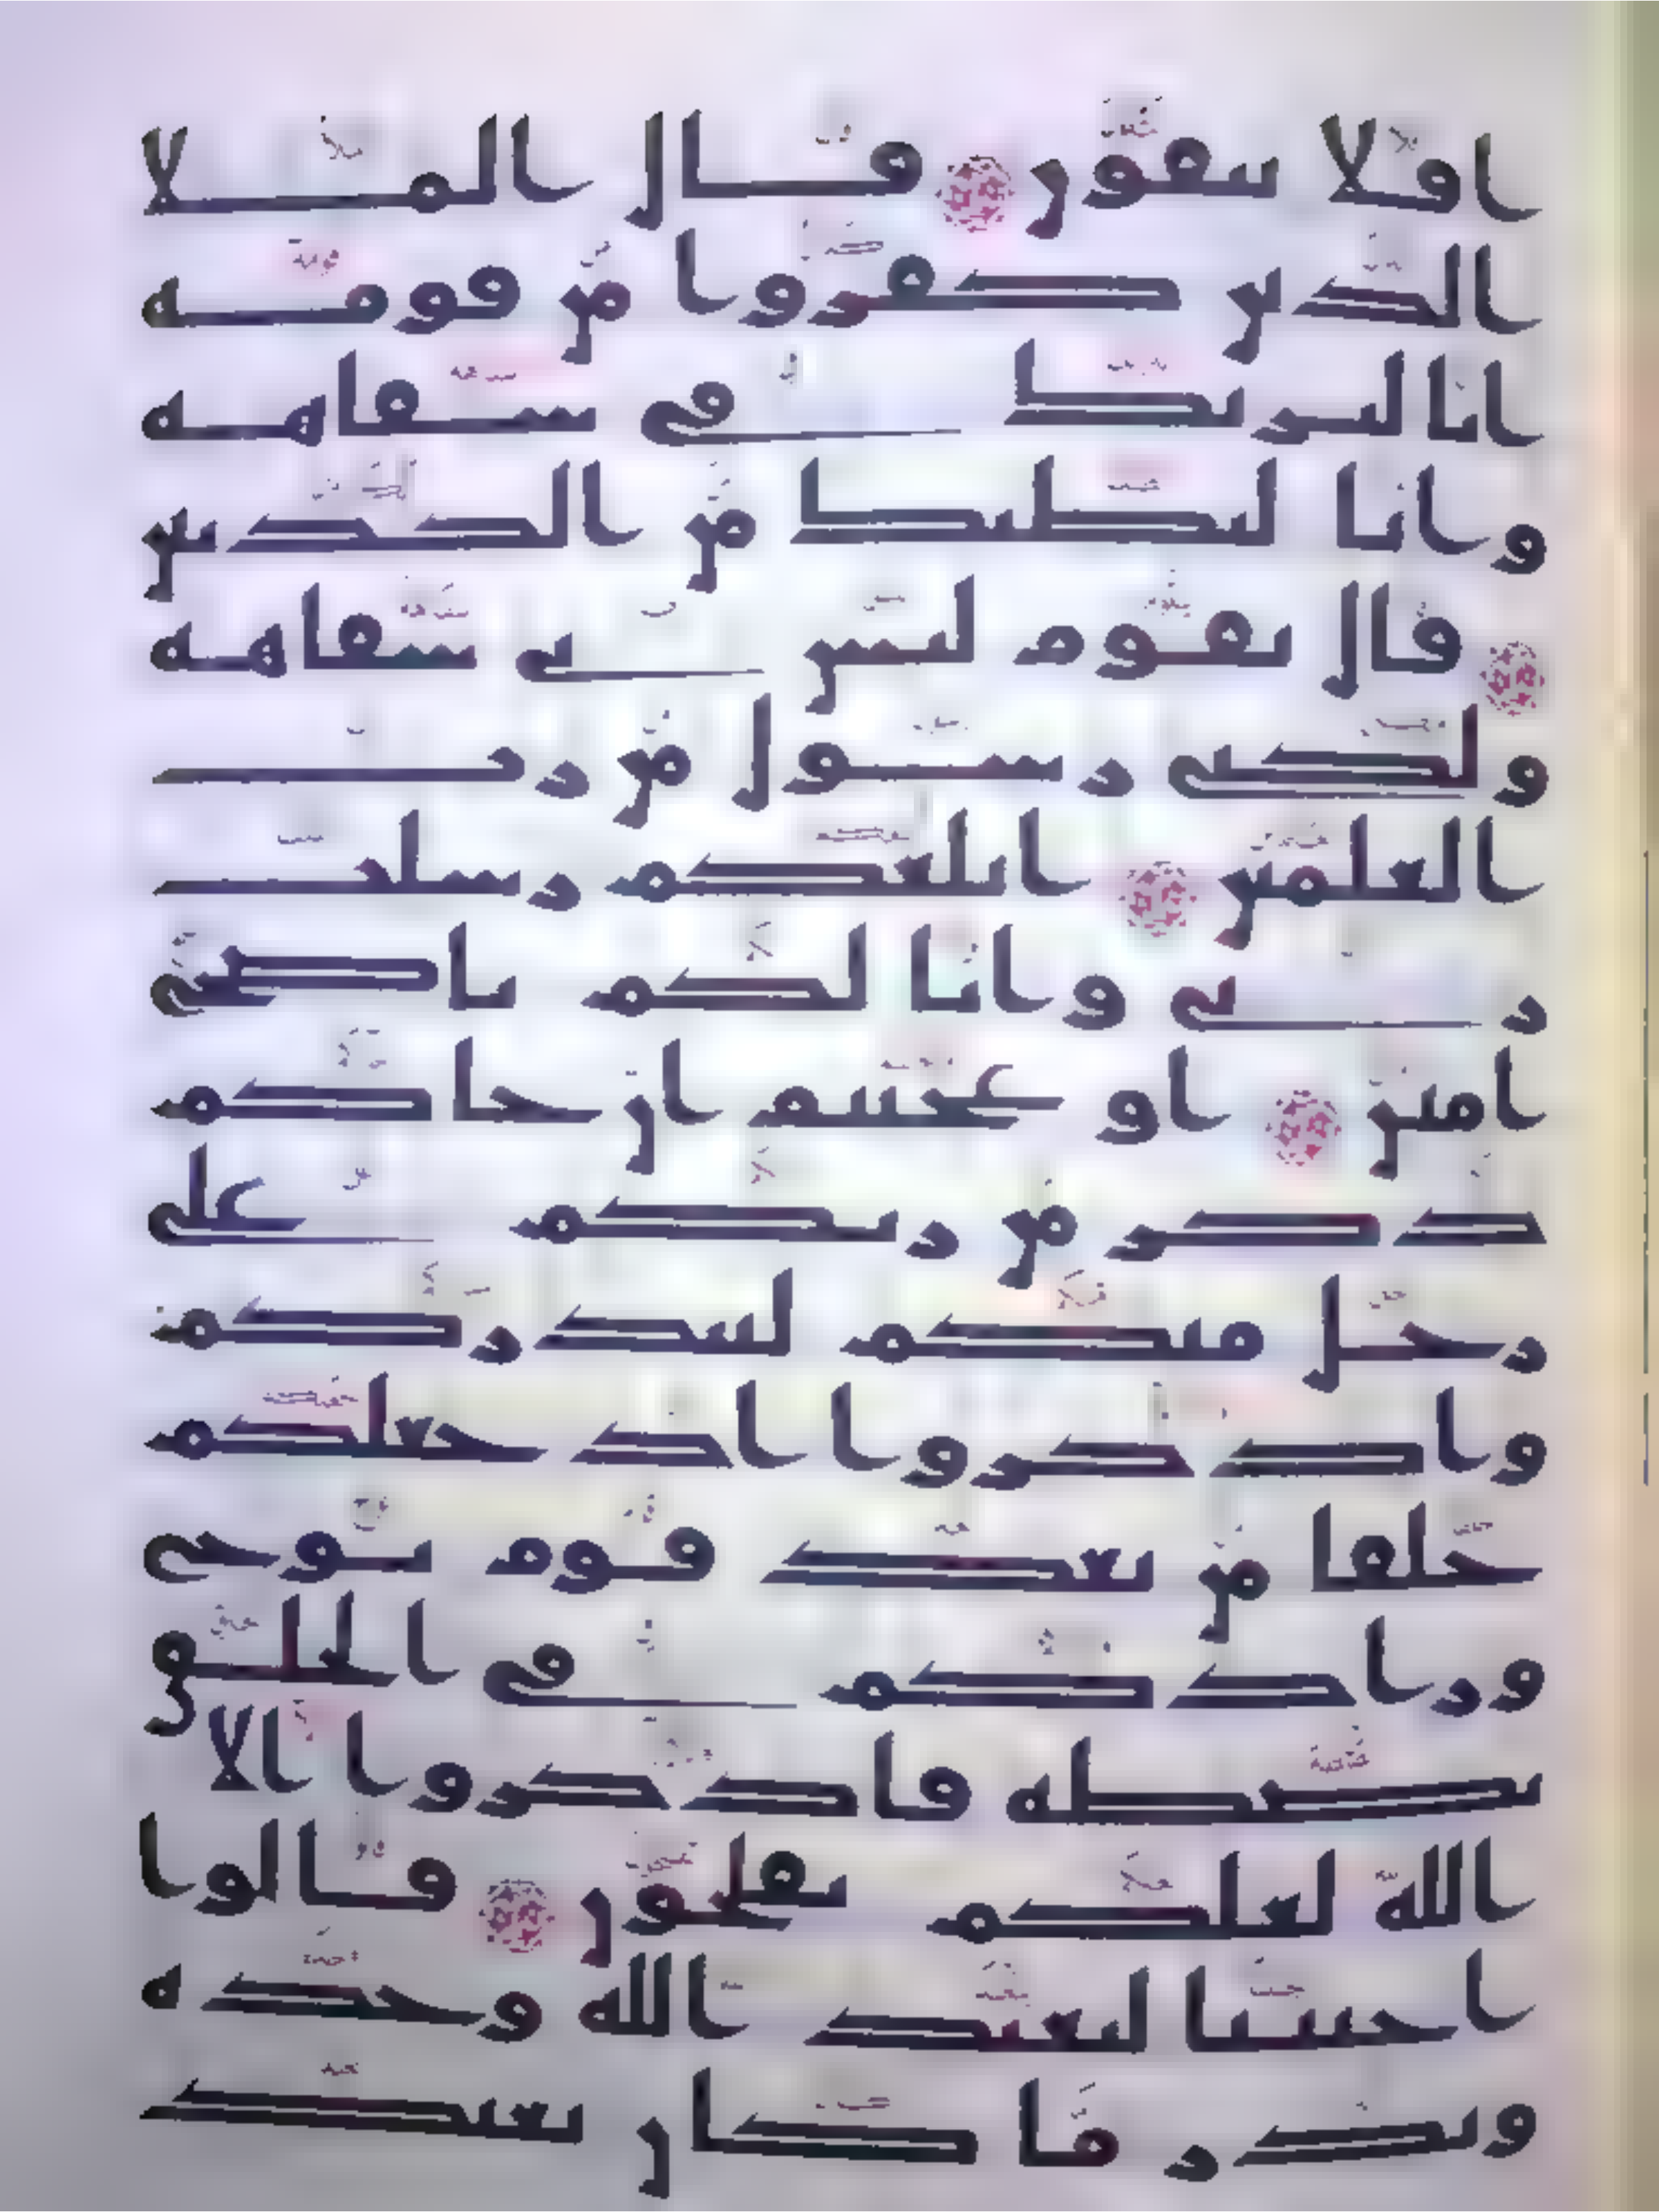 افلا تتقون قال الملا
الذين كفروا من قومه
انا لنريك في سفاهه
وانا لنظنك من الكذبين
قال يقوم ليس بي سفاهه
ولكني رسول من رب
العلمين ابلغكم رسلت
ربي وانا لكم ناصح
امين او عجبتم ان جاكم
ذكر من ربكم على
رجل منكم لينذركم
واذكروا اذ جعلكم
خلفا من بعد قوم نوح
وزادكم في الخلق
بصطه فاذكروا الا
الله لعلكم تفلحون قالوا
اجيتنا لنعبد الله وحده
ونذر ما كان يعبد